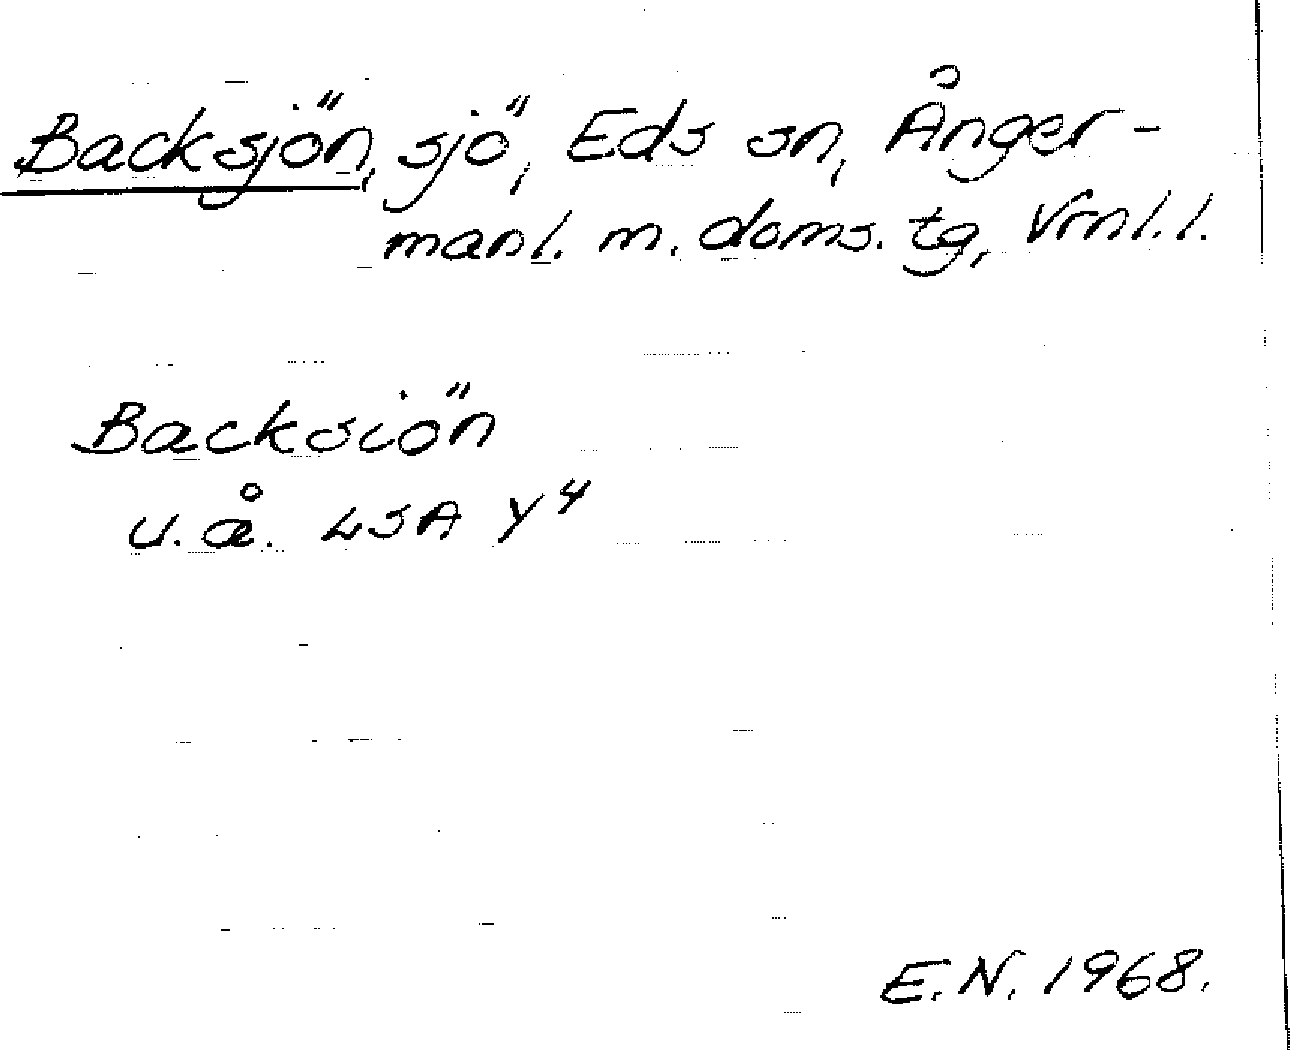 Backsjön, sjö, Eds sn, Ånger-
manl. m. doms. tg, Vrnl. l.
Backsiön
u. å. LSA Y4
E. N. 1968.